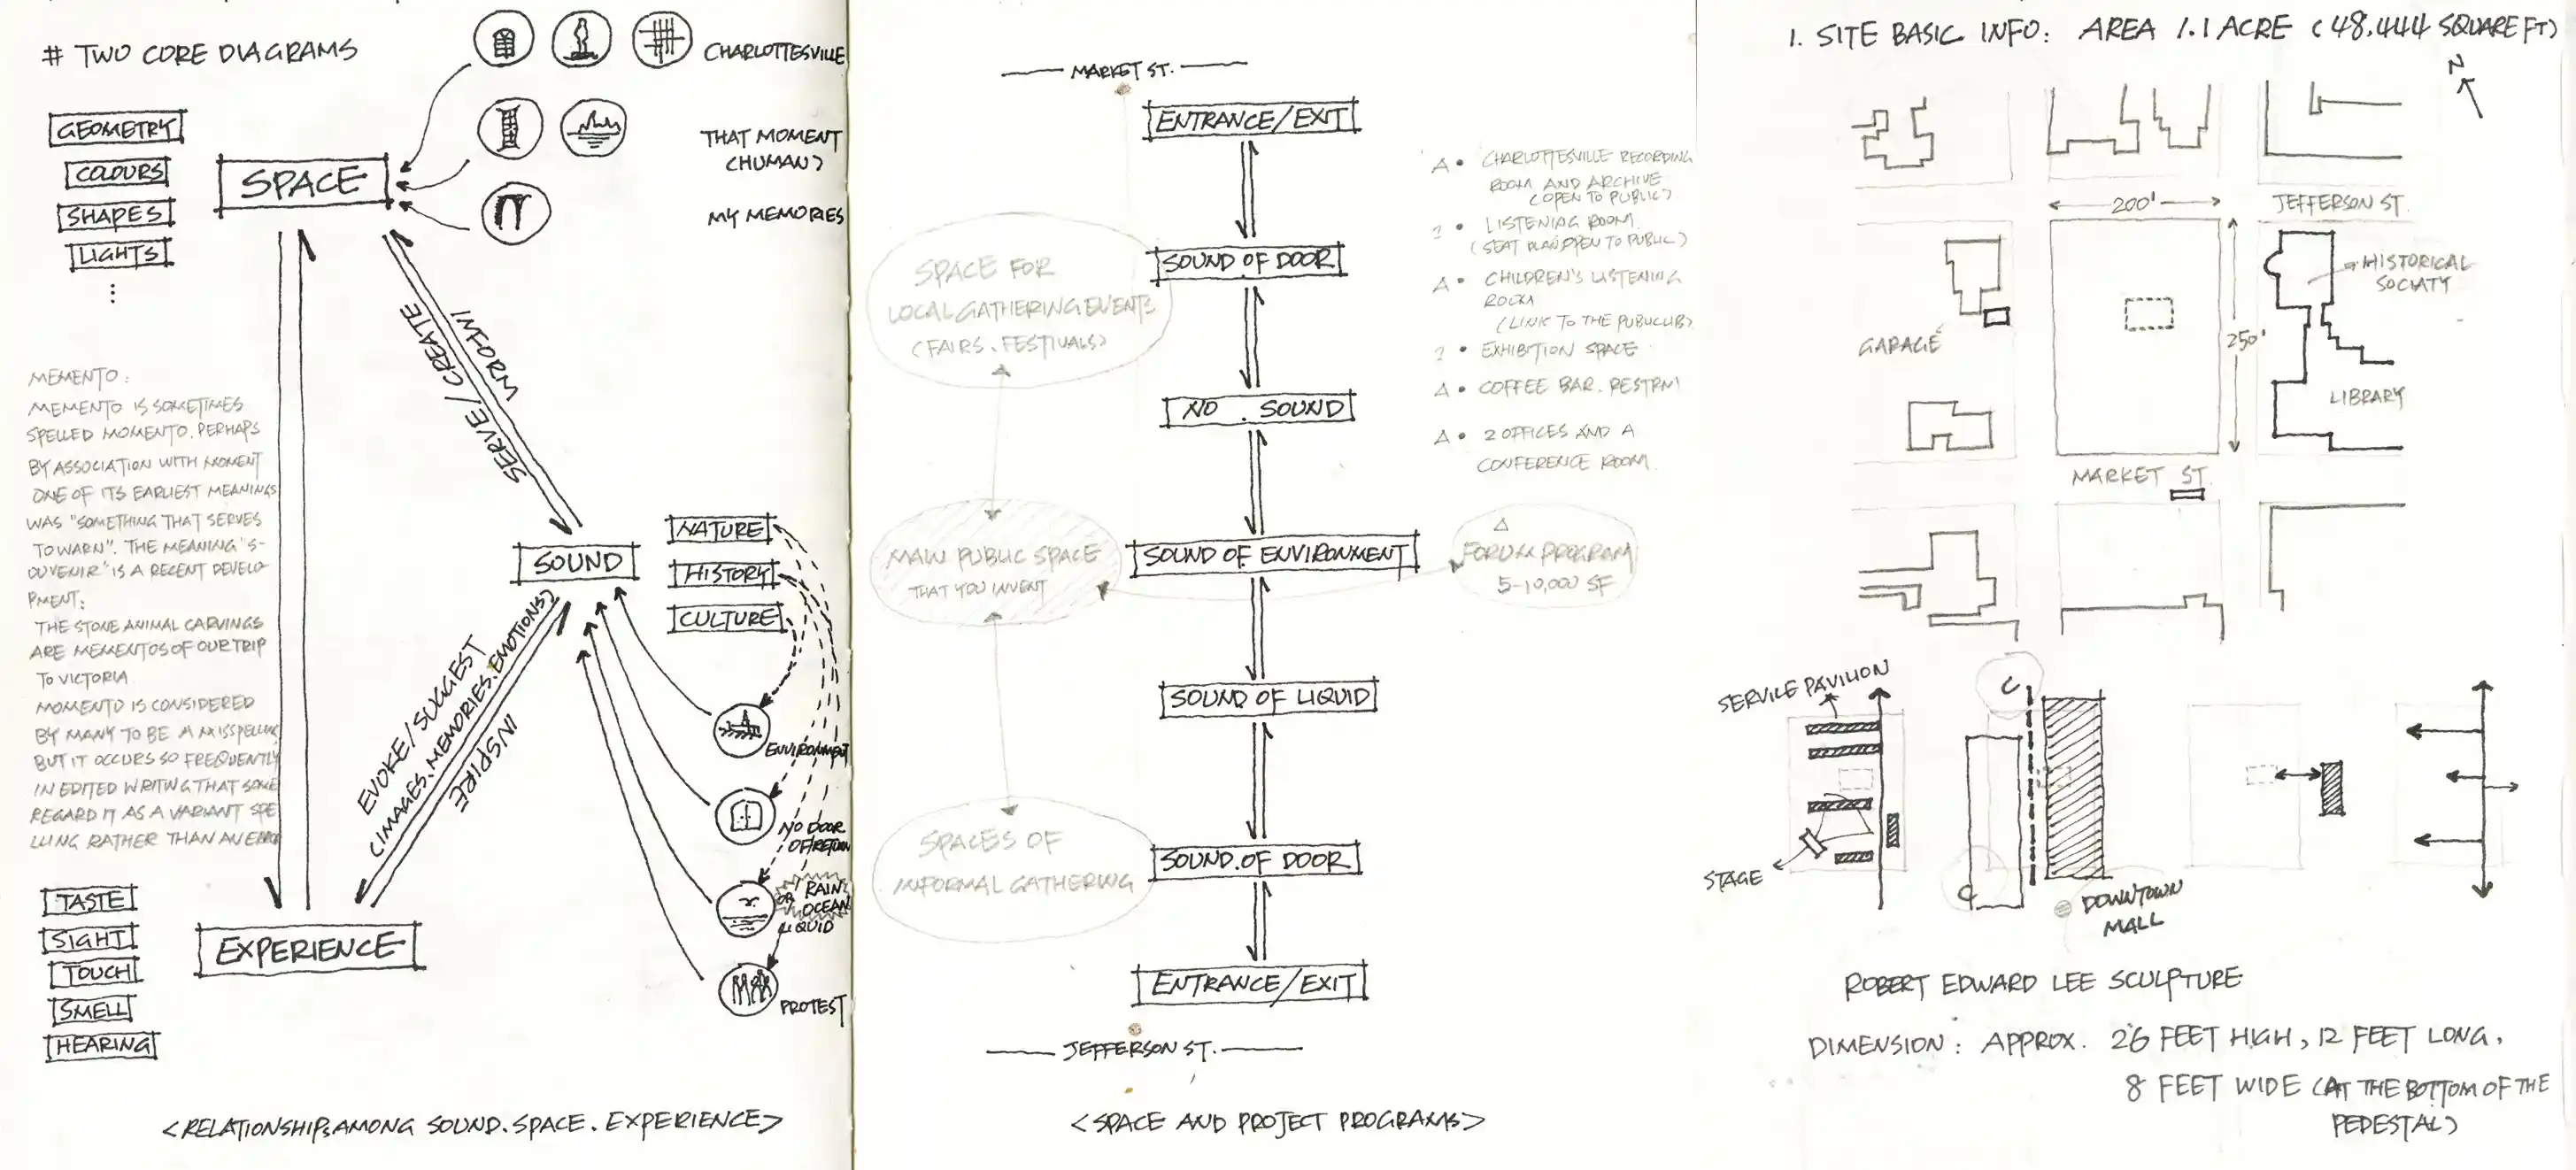 # TWO CORE DIAGRAMS
CHARLOTTESVILLE
GEOMETRY
COLOURS
SHAPES
LIGHTS
SPACE
THAT MOMENT
(HUMAN)
MY MEMORIES
SERVE / CREATE
INFORM
MEMENTO:
MEMENTO IS SOMETIMES
SPELLED MOMENTO. PERHAPS
BY ASSOCIATION WITH MOMENT
ONE OF ITS EARLIEST MEANINGS
WAS "SOMETHING THAT SERVES
TO WARN". THE MEANING "S-
OUVENIR" IS A RECENT DEVELO-
PMENT:
THE STONE ANIMAL CARVINGS
ARE MEMENTOS OF OUR TRIP
TO VICTORIA
MOMENTO IS CONSIDERED
BY MANY TO BE A MISSPELLING
BUT IT OCCURS SO FREQUENTLY
IN EDITED WRITING THAT SOME
REGARD IT AS A VARIANT SPE
LLING RATHER THAN AN ERROR
SOUND
NATURE
HISTORY
CULTURE
EVOKE/SUGGEST
(IMAGES. MEMORIES. EMOTIONS)
INSPIRE
ENVIRONMENT
NO DOOR
OF RETURN
RAIN
OR OCEAN
LIQUID
PROTEST
TASTE
SIGHT
TOUCH
SMELL
HEARING
EXPERIENCE
<RELATIONSHIPS AMONG SOUND. SPACE. EXPERIENCE>
MARKET ST.
ENTRANCE/EXIT
SOUND OF DOOR
NO . SOUND
SOUND OF ENVIRONMENT
SOUND OF LIQUID
SOUND. OF DOOR
ENTRANCE/EXIT
JEFFERSON ST.
SPACE FOR
LOCAL GATHERING EVENTS
(FAIRS. FESTIVALS)
MAIN PUBLIC SPACE
THAT YOU INVENT
SPACES OF
INFORMAL GATHERING
△ • CHARLOTTESVILLE RECORDING
ROOM AND ARCHIVE
(OPEN TO PUBLIC)
? • LISTENING ROOM
(SEAT PLAN, OPEN TO PUBLIC)
△ • CHILDREN'S LISTENING
ROOM
(LINK TO THE PUBLIC LIB)
? • EXHIBITION SPACE
△ • COFFEE BAR. RESTRM
△ • 2 OFFICES AND A
CONFERENCE ROOM
△
FORUM PROGRAM
5-10,000 SF
<SPACE AND PROJECT PROGRAMS>
1. SITE BASIC INFO: AREA 1.1 ACRE (48.444 SQUARE FT)
N
200'
JEFFERSON ST.
HISTORICAL
SOCIATY
250'
GARAGE
LIBRARY
MARKET ST.
SERVILE PAVILION
STAGE
DOWNTOWN
MALL
ROBERT EDWARD LEE SCULPTURE
DIMENSION: APPROX. 26 FEET HIGH, 12 FEET LONG,
8 FEET WIDE (AT THE BOTTOM OF THE
PEDESTAL)